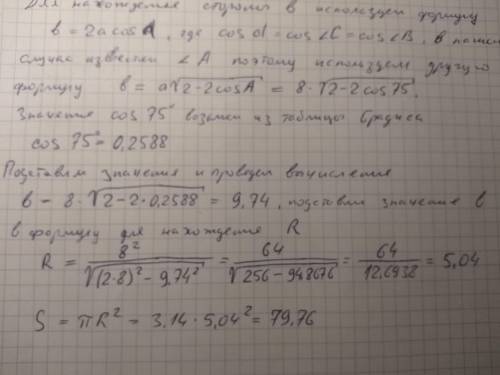 Для нахождения стороны в используем формулу
в = 2a cos α, где cos α = cos∠C = cos∠B, в нашем
случае известен ∠A поэтому используем другую
формулу в = a√(2-2cosA) = 8·√(2-2cos75°.
Значение cos 75° возьмем из таблицы Брадиса
cos 75° = 0,2588
Подставим значения и проведем вычисления
в = 8·√(2-2·0,2588) = 9,74, подставим значение в
в формулу для нахождения R
R = 8²/√((2·8)² - 9,74²) = 64/√(256-94,8676) = 64/12,6938 = 5,04
S = πR² = 3,14·5,04² = 79,76